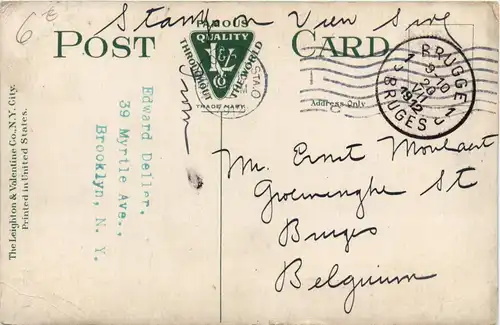 6 €
Stamp on View Side
POST CARD
FAMOUS
QUALITY
THROUGHOUT THE WORLD
L & V Co
TRADE MARK
Address Only
BRUGGE
1912
BRUGES
Edward Deller,
39 Myrtle Ave.,
Brooklyn, N. Y.
Mr. Ernst
St
Bruges
Belgium
The Leighton & Valentine Co., N.Y. City.
Printed in United States.